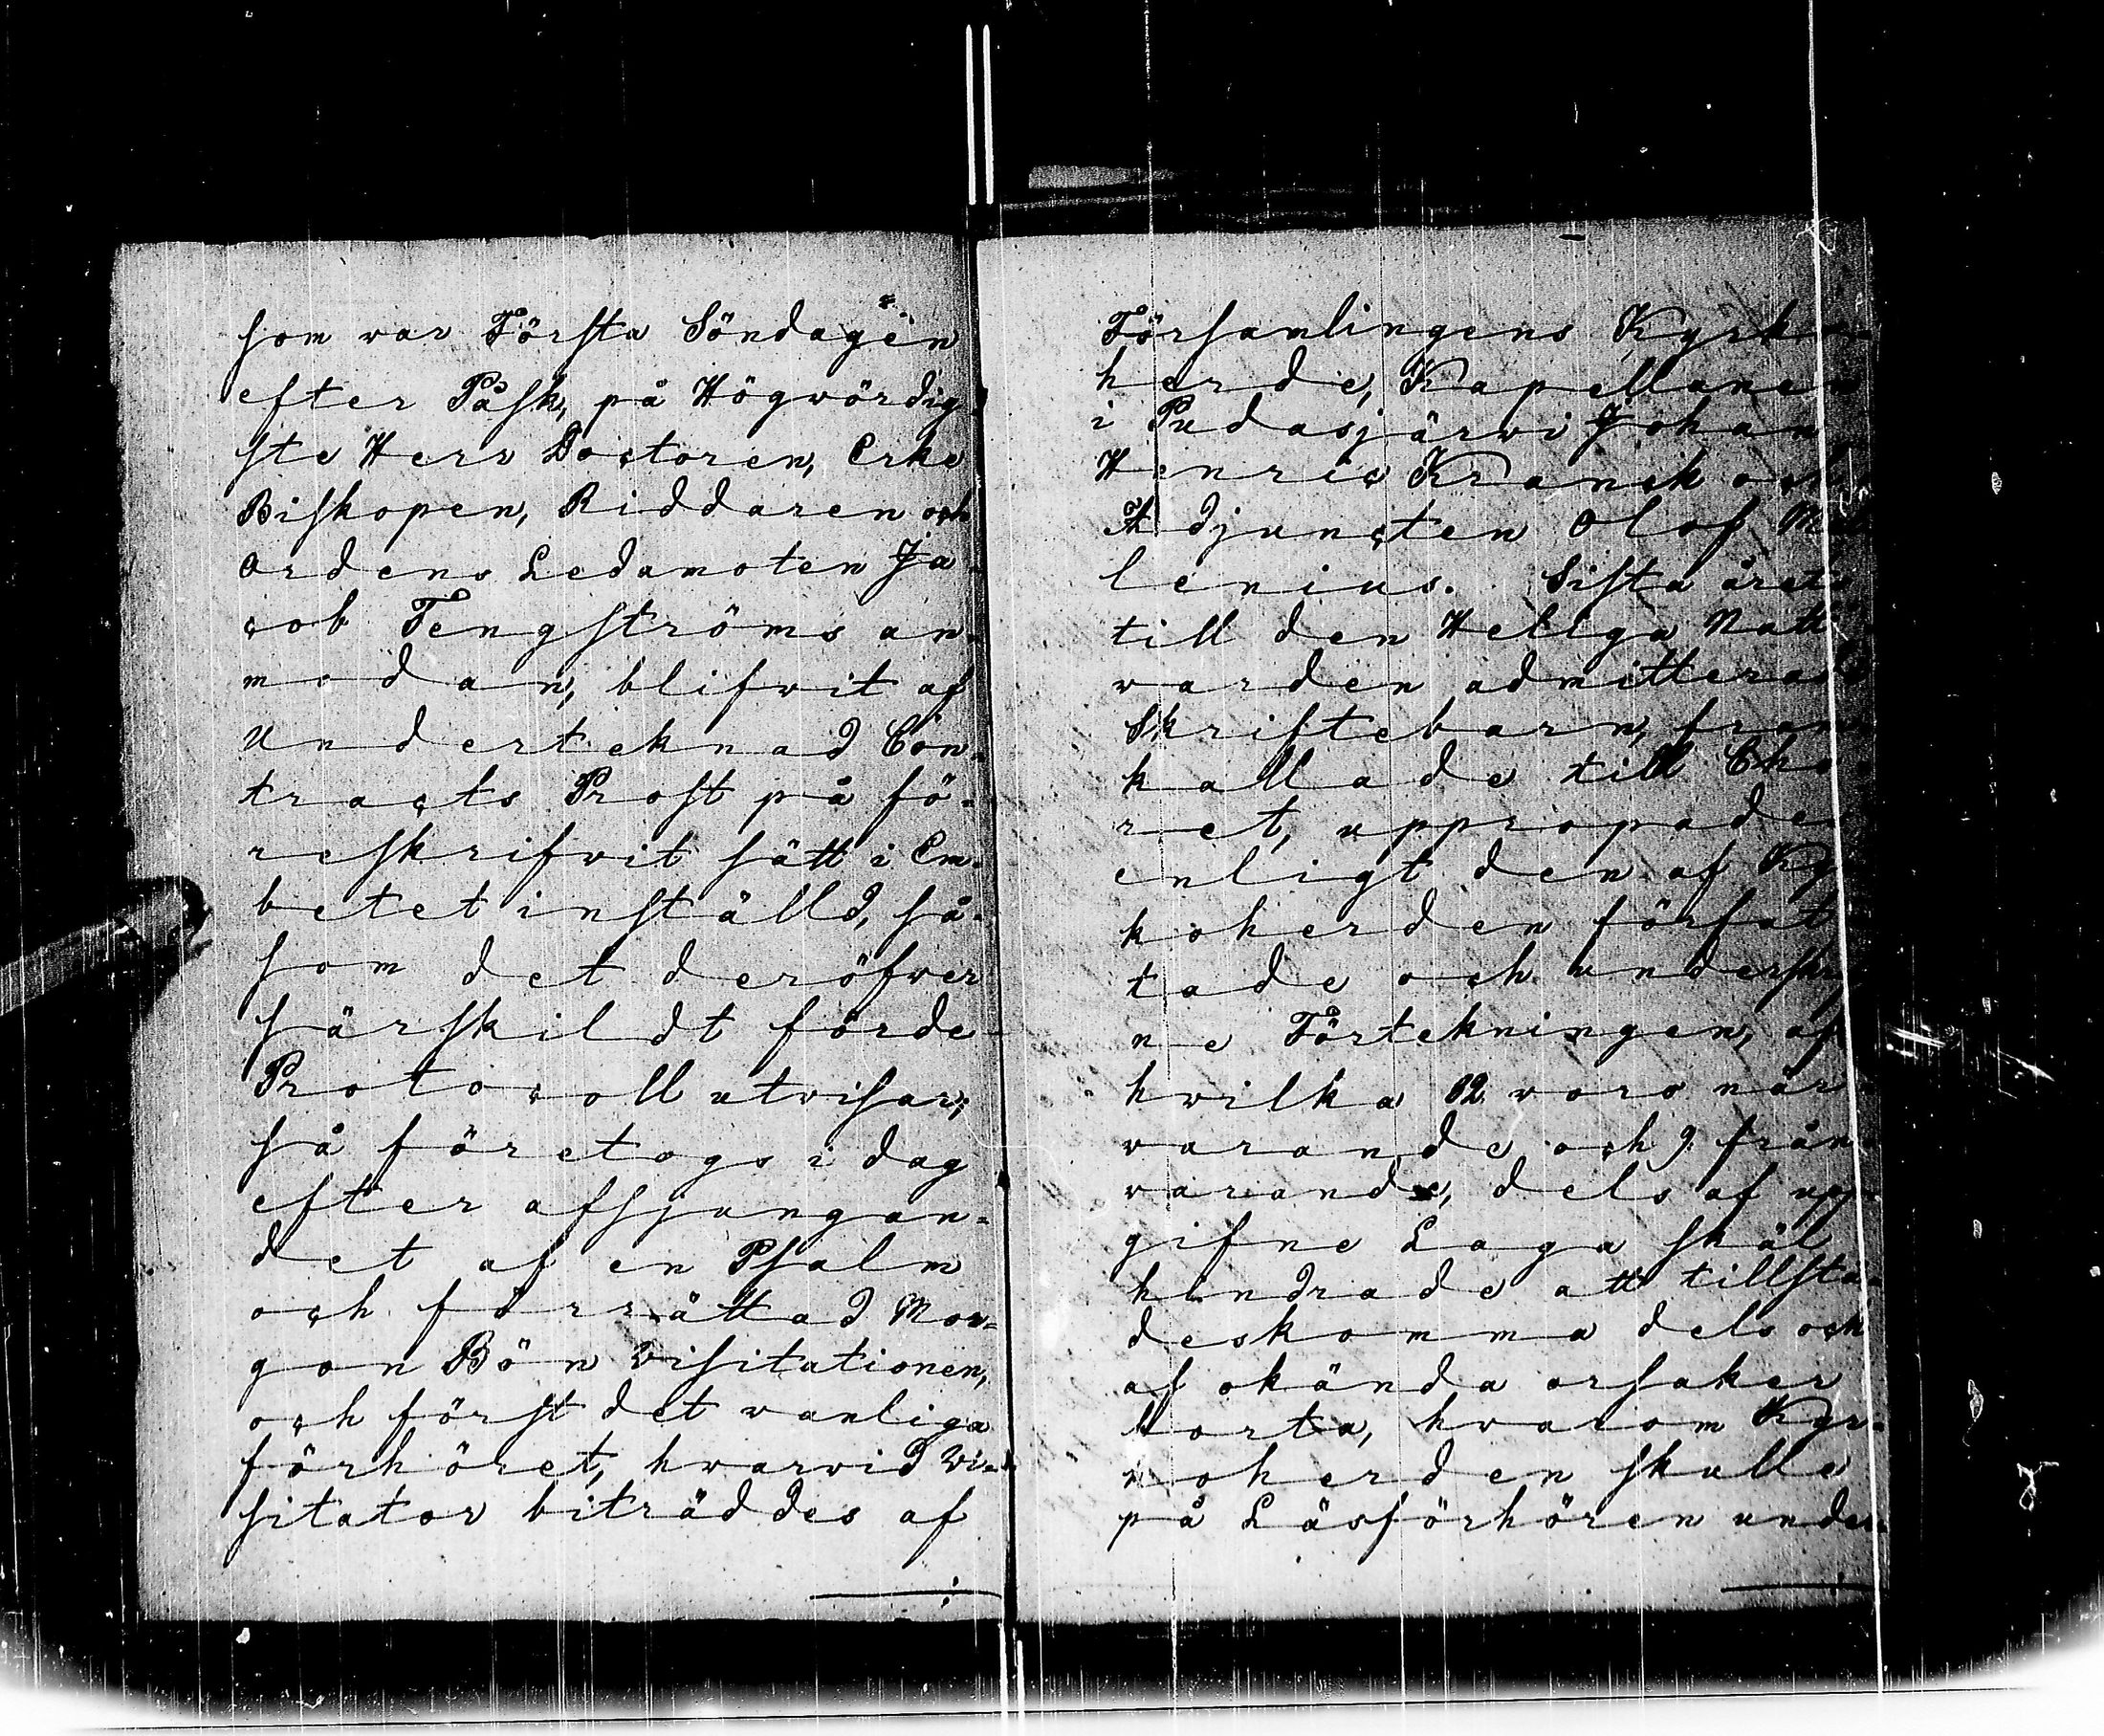 som war Första Söndagen
efter Påsk, på Högwördig-
ste Herr Doctoren, Erke
Biskopen, Riddaren och
Ordens Ledamoten Ja-
cob Tengströms an-
modan, blifwit af
Underteknad Con-
tracts Prost på fö-
reskrifwit sätt i Em-
betet inställd, så-
som det deröfwer
särskildt förde
Protocoll utvisar;
så företogs i dag
efter afsjungan-
det af en Psalm
och förrättad Mor-
gon Bön Visitationen,
och först det wanliga
förhöret, hwarwid Vi-
sitator biträddes af
Församlingens Kyrko-
herde, Kapellanen
i Pudasjärwi Johan
Henric Kranck och
Adjuncten Olof
lenius. Sista årets
till den Heliga Natt-
warden admitterade
Skriftebarn, fram
kallade till Cho-
ret, uppropades
enligt den af Kyr
koherden förfat
tade och underskr
ne Förtekningen, af
hwilka 82 woro när
warande och 9 från-
warande, dels af upp-
gifne Laga skäl
hindrade att tillsta-
deskomma dels och
af okända orsaker
borta, hwarom Kyr-
koherden skulle
på Läsförhören under